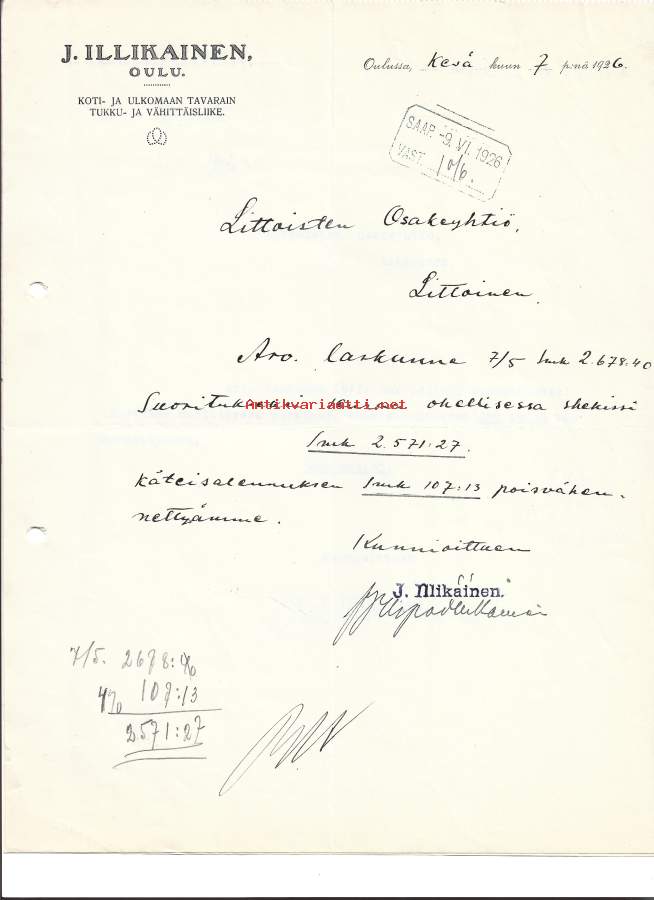 J. ILLIKAINEN,
OULU.
KOTI- JA ULKOMAAN TAVARAIN
TUKKU- JA VÄHITTÄISLIIKE.
Oulussa, Kesä kuun 7 p:nä 1926.
SAAP. -9. VI. 1926
VAST. 10/6.
Littoisten Osakeyhtiö,
Littoinen.
Arv. laskunne 7/5 Smk 2.678:40
Suoritukseksi ohellisessa shekissä
Antikvariaatti.net
Smk 2.571:27.
Käteisalennuksen Smk 107:13 poisvähen-
nettyämme.
Kunnioittaen
J. Illikainen.
7/5. 2678:40
4% 107:13
2571:27